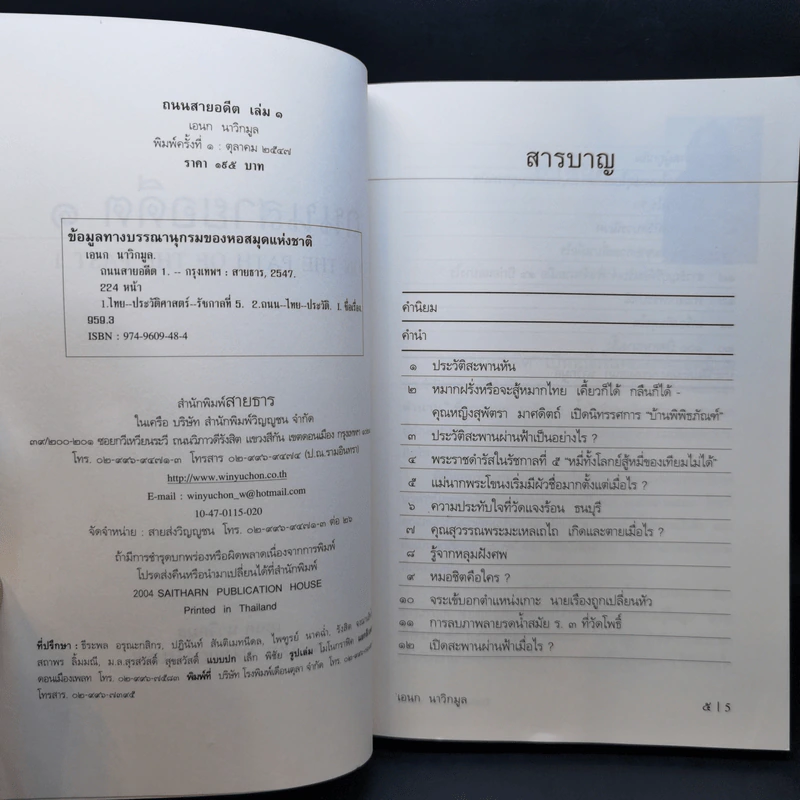 ถนนสายอดีต เล่ม ๑
เอนก นาวิกมูล
พิมพ์ครั้งที่ ๑ : ตุลาคม ๒๕๔๗
ราคา ๑๙๕ บาท
ข้อมูลทางบรรณานุกรมของหอสมุดแห่งชาติ
เอนก นาวิกมูล.
ถนนสายอดีต 1. -- กรุงเทพฯ : สายธาร, 2547.
224 หน้า
1.ไทย--ประวัติศาสตร์--รัชกาลที่ 5. 2.ถนน--ไทย--ประวัติ. I. ชื่อเรื่อง.
959.3
ISBN : 974-9609-48-4
สำนักพิมพ์สายธาร
ในเครือ บริษัท สำนักพิมพ์วิญญูชน จำกัด
๓๙/๒๐๐-๒๐๑ ซอยทวีเหวียนระวี ถนนวิภาวดีรังสิต แขวงสีกัน เขตดอนเมือง กรุงเทพฯ
โทร. ๐๒-๙๙๖-๙๔๗๑-๓ โทรสาร ๐๒-๙๙๖-๙๔๗๔ (ป.ณ.รามอินทรา)
http://www.winyuchon.co.th
E-mail : winyuchon_w@hotmail.com
10-47-0115-020
จัดจำหน่าย : สายส่งวิญญูชน โทร. ๐๒-๙๙๖-๙๔๗๑-๓ ต่อ ๒๖
ถ้ามีการชำรุดบกพร่องหรือผิดพลาดเนื่องจากการพิมพ์
โปรดส่งคืนหรือนำมาเปลี่ยนได้ที่สำนักพิมพ์
2004 SAITHARN PUBLICATION HOUSE
Printed in Thailand
ที่ปรึกษา : ธีระพล อรุณะกสิกร, ปฏินันท์ สันติเมทนีดล, ไพฑูรย์ นาคฉ่ำ, รังสิต
สถาพร ลิ้มมณี, ม.ล.สุรสวัสดิ์ สุขสวัสดิ์ แบบปก เล็ก พิชัย รูปเล่ม โมโนกราฟิค
ดอนเมืองเพลท โทร. ๐๒-๙๙๖-๗๕๘๓ พิมพ์ที่ บริษัท โรงพิมพ์เดือนตุลา จำกัด โทร. ๐๒-๙๙๖-
โทรสาร. ๐๒-๙๙๖-๗๓๙๕
สารบาญ
คำนิยม
คำนำ
๑ ประวัติสะพานหัน
๒ หมากฝรั่งหรือจะสู้หมากไทย เคี้ยวก็ได้ กลืนก็ได้ -
คุณหญิงสุพัตรา มาศดิตถ์ เปิดนิทรรศการ "บ้านพิพิธภัณฑ์"
๓ ประวัติสะพานผ่านฟ้าเป็นอย่างไร ?
๔ พระราชดำรัสในรัชกาลที่ ๕ "หมี่ทั้งโลกย์สู้หมี่ของเทียมไม่ได้"
๕ แม่นากพระโขนงเริ่มมีผัวชื่อมากตั้งแต่เมื่อไร ?
๖ ความประทับใจที่วัดแจงร้อน ธนบุรี
๗ คุณสุวรรณพระมะเหลเถไถ เกิดและตายเมื่อไร ?
๘ รู้จากหลุมฝังศพ
๙ หมอชิตคือใคร ?
๑๐ จระเข้บอกตำแหน่งเกาะ นายเรืองถูกเปลี่ยนหัว
๑๑ การลบภาพลายรดน้ำสมัย ร. ๓ ที่วัดโพธิ์
๑๒ เปิดสะพานผ่านฟ้าเมื่อไร ?
เอนก นาวิกมูล
๕ | 5